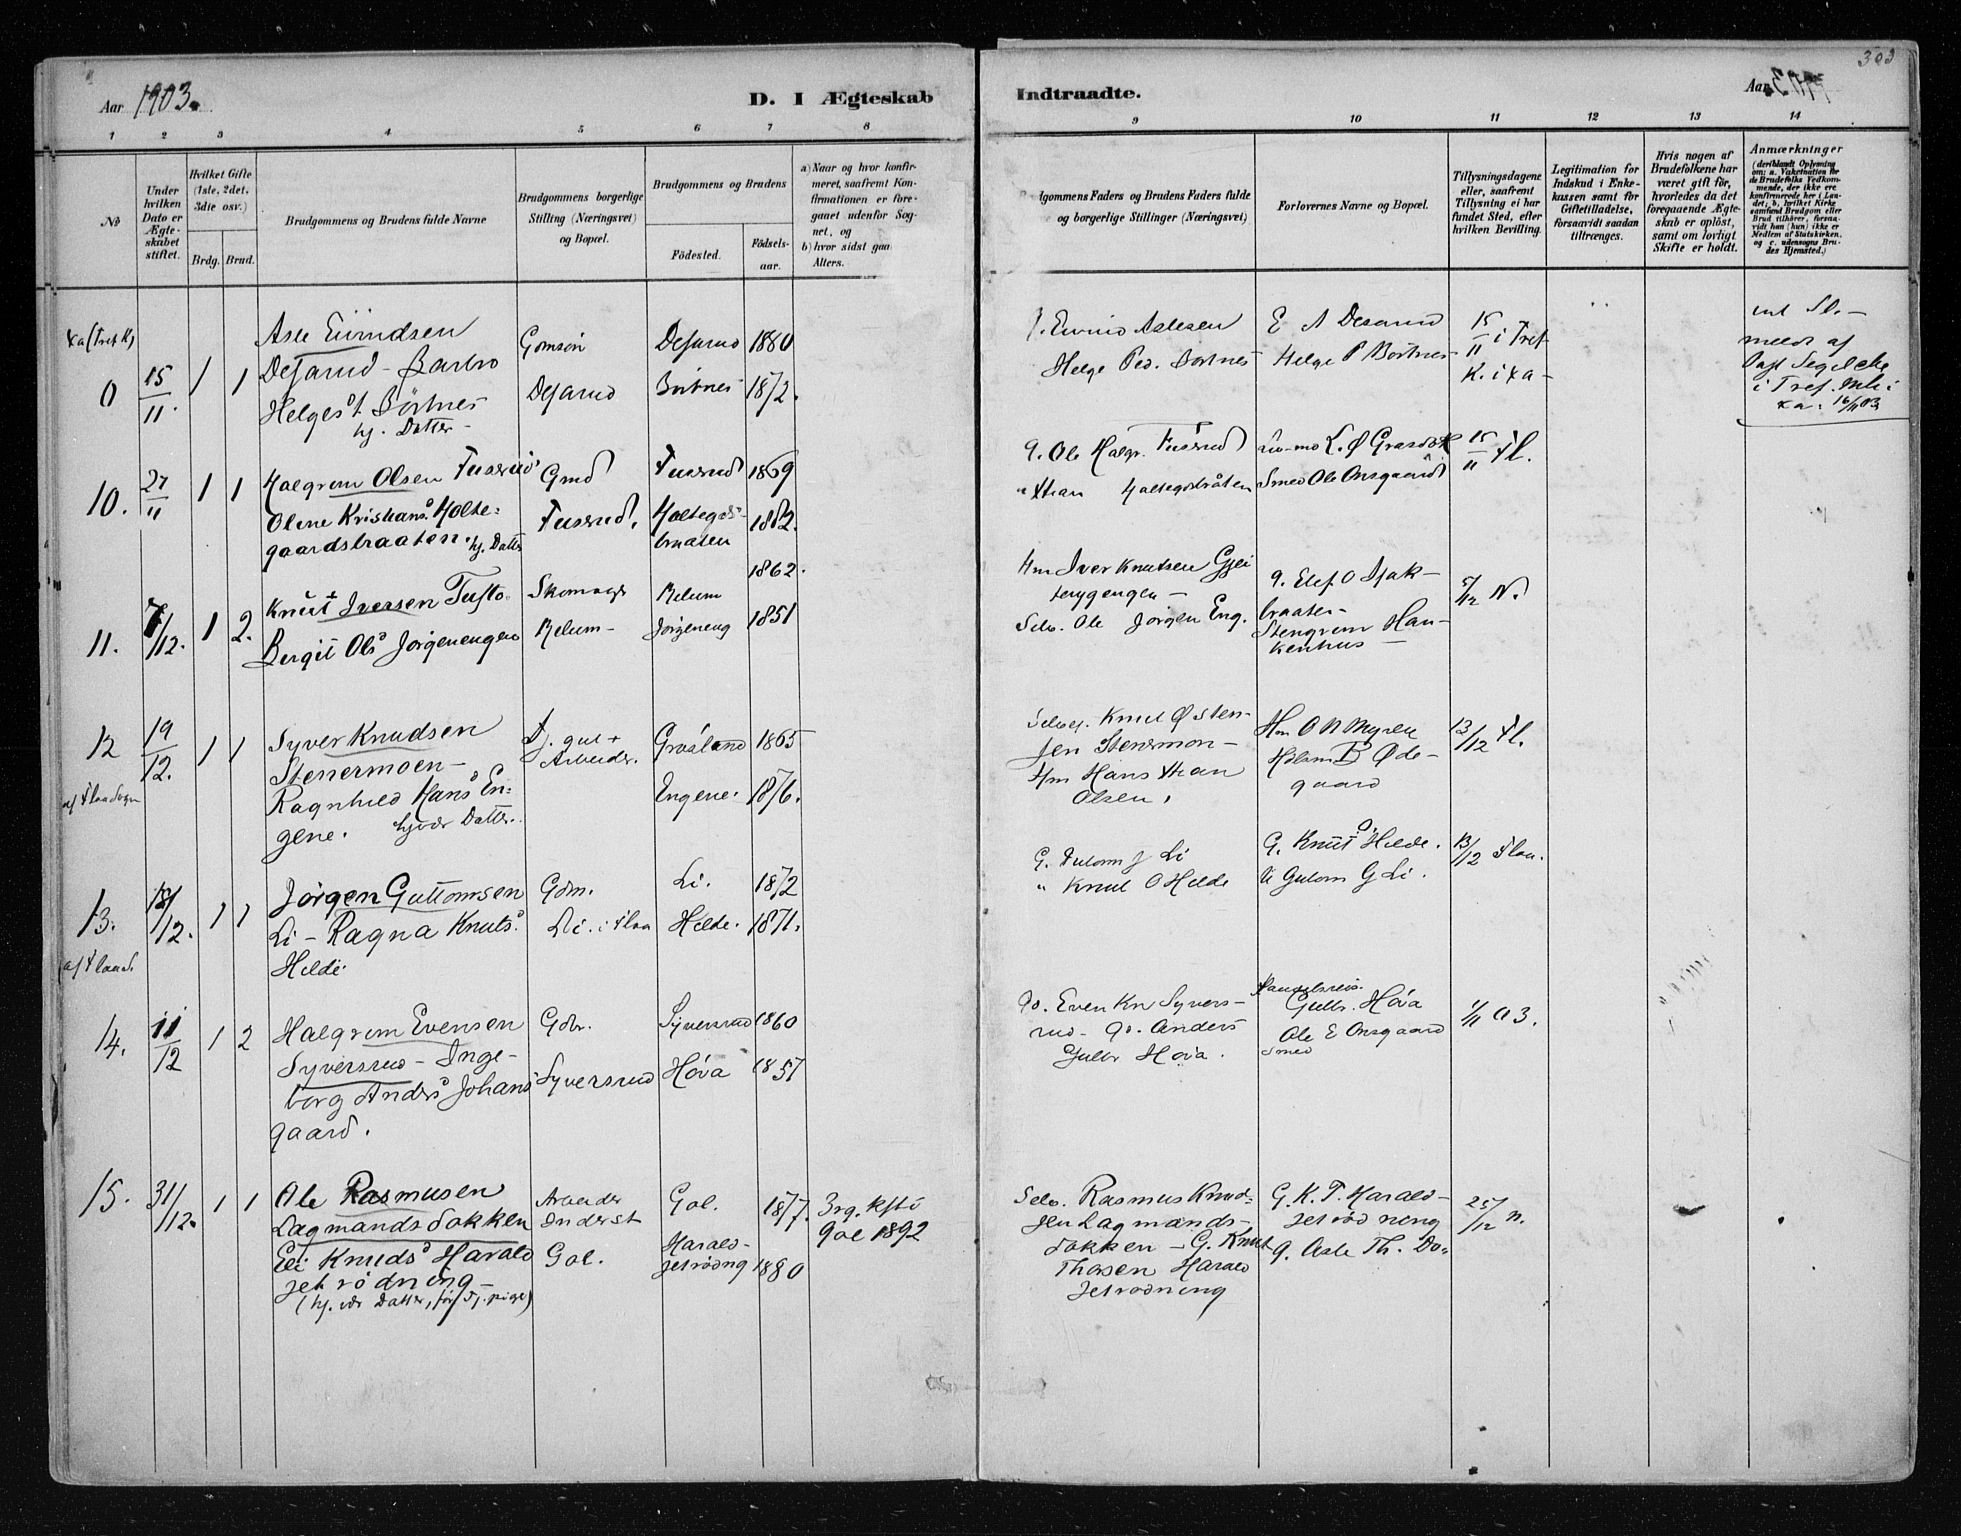 Aar 1903.
D. I Ægteskab
Indtraadte.
Aar 1903.
303
1 2 3 4 5 6 7 8 9 10 11 12 13 14
No
Under hvilken Dato er Ægteskabet stiftet.
Hvilket Gifte (1ste, 2det, 3die osv.)
Brdg. Brud.
Brudgommens og Brudens fulde Navne
Brudgommens borgerlige Stilling (Næringsvei) og Bopæl.
Brudgommens og Brudens
Fødested.
Fødselsaar.
a) Naar og hvor konfirmeret, saafremt Konfirmationen er foregaaet udenfor Sognet, og
b) hvor sidst gaa
Alters.
dgommens Faders og Brudens Faders fulde
e og borgerlige Stillinger (Næringsvei)
Forlovernes Navne og Bopæl.
Tillysningsdagene eller, saafremt Tillysning ei har fundet Sted, efter hvilken Bevilling.
Legitimation for Indskud i Enkekassen samt for Giftetilladelse, forsaavidt saadan tiltrænges.
Hvis nogen af Brudefolkene har været gift før, hvorledes da det foregaaende Ægteskab er opløst, samt om lovligt Skifte er holdt.
Anmærkninger
(deriblandt Oplysning om: a. Vakcination for de Brudefolks Vedkommende, der ikke ere konfirmerede her i Landet; b. hvilket Kirkesamfund Brudgom eller Brud tilhører, forsaavidt han (hun) ikke er Medlem af Statskirken, og c. udensogns Brudes Hjemsted.)
0 15/11. 1 1
Asle Eivindsen
Desarud - Barbro
Helgesd. Børtnes
hj. Datter -
Desarud
Desarud 1880
1872.
Eivind Aslesen
Helge Ped. Bortnes
E A Desarud
Helge P Bortnes
15/11 i Tref
K. i Xa -
meldt af
Past Segelcke
i Tref. Mk i
Xa. 16/11 03
10. 27/11 1 1
Halgrim Olsen Tuserud
Olene Kristians. Holte-
gaardsbraaten. hj. Datter
Gmd
Tuserud.
Tuserud 1869
Holtegds-
braaten 1882.
9. Ole Halgr. Tuserud
" Xtian Holtegdsbråten
Smed Ole Onsgaard
15/11 Fl.
11. /12. 1 2.
Knut Iversen Tufto
Bergit Ols Jorgenengen
Skomager
Relum -
Relum 1862.
Jorgeneng 1851
Hm Iver Knutsen Gjei
terygengen -
Selv. Ole Jorgen Eng.
braaten -
Stengrim Han-
kenhus -
/12 N.
12 19/12. 1 1
af Flaa Sogn
Syver Knudsen
Stenermoen -
Ragnhild Hans En-
gene. hjvær Datter.
Tj. gut +
Arbeider.
Grosland 1865
Engene. 1876.
Selvei. Knut Østen-
sen Stenermon -
Hm Hans Xtian
Olsen.
Hm O N Myren
B Øde-
gaard
13/12 Fl.
13. 18/12. 1 1
af Flaa S.
Jörgen Guttomsen
Li - Ragna Knuts.
Hilde.
Gdm.
Li. i Flaa
Li. 1872
Hilde. 1871.
G. Gutorm J Li
" Knut O Hilde
G. Knut O. Hilde.
G Gutorm G Li.
13/12 Flaa.
14. 11/12 1 2
Halgrim Evensen
Syversrud - Inge-
borg Anders Johans
gaard.
Gdbr.
Syversrud
Syversrud 1860
Höva 1851
Even Kn Syvers-
rud - Anders
Gulbr Höva.
Handelsreis.
Gulbr. Höva
Ole E Onsgaard
Smed
1/11 03.
15. 31/12. 1 1
Ole Rasmusen
Lagmandsdokken
Eli Knuds Harald
setrödning -
(hj. vær Datter, før Tj. pige)
Arbeider
Inderst
Gol.
Gol. 1877.
Harald-
setrödng 1880
Brg. kfst i
Gol 1892
Selv. Rasmus Knud-
sen Lagmands-
dokken - G. Knut
Thorsen Harald
setrödning
G. K. T. Harald-
setrödning
9. Asle Th. Do.
25/12 N.